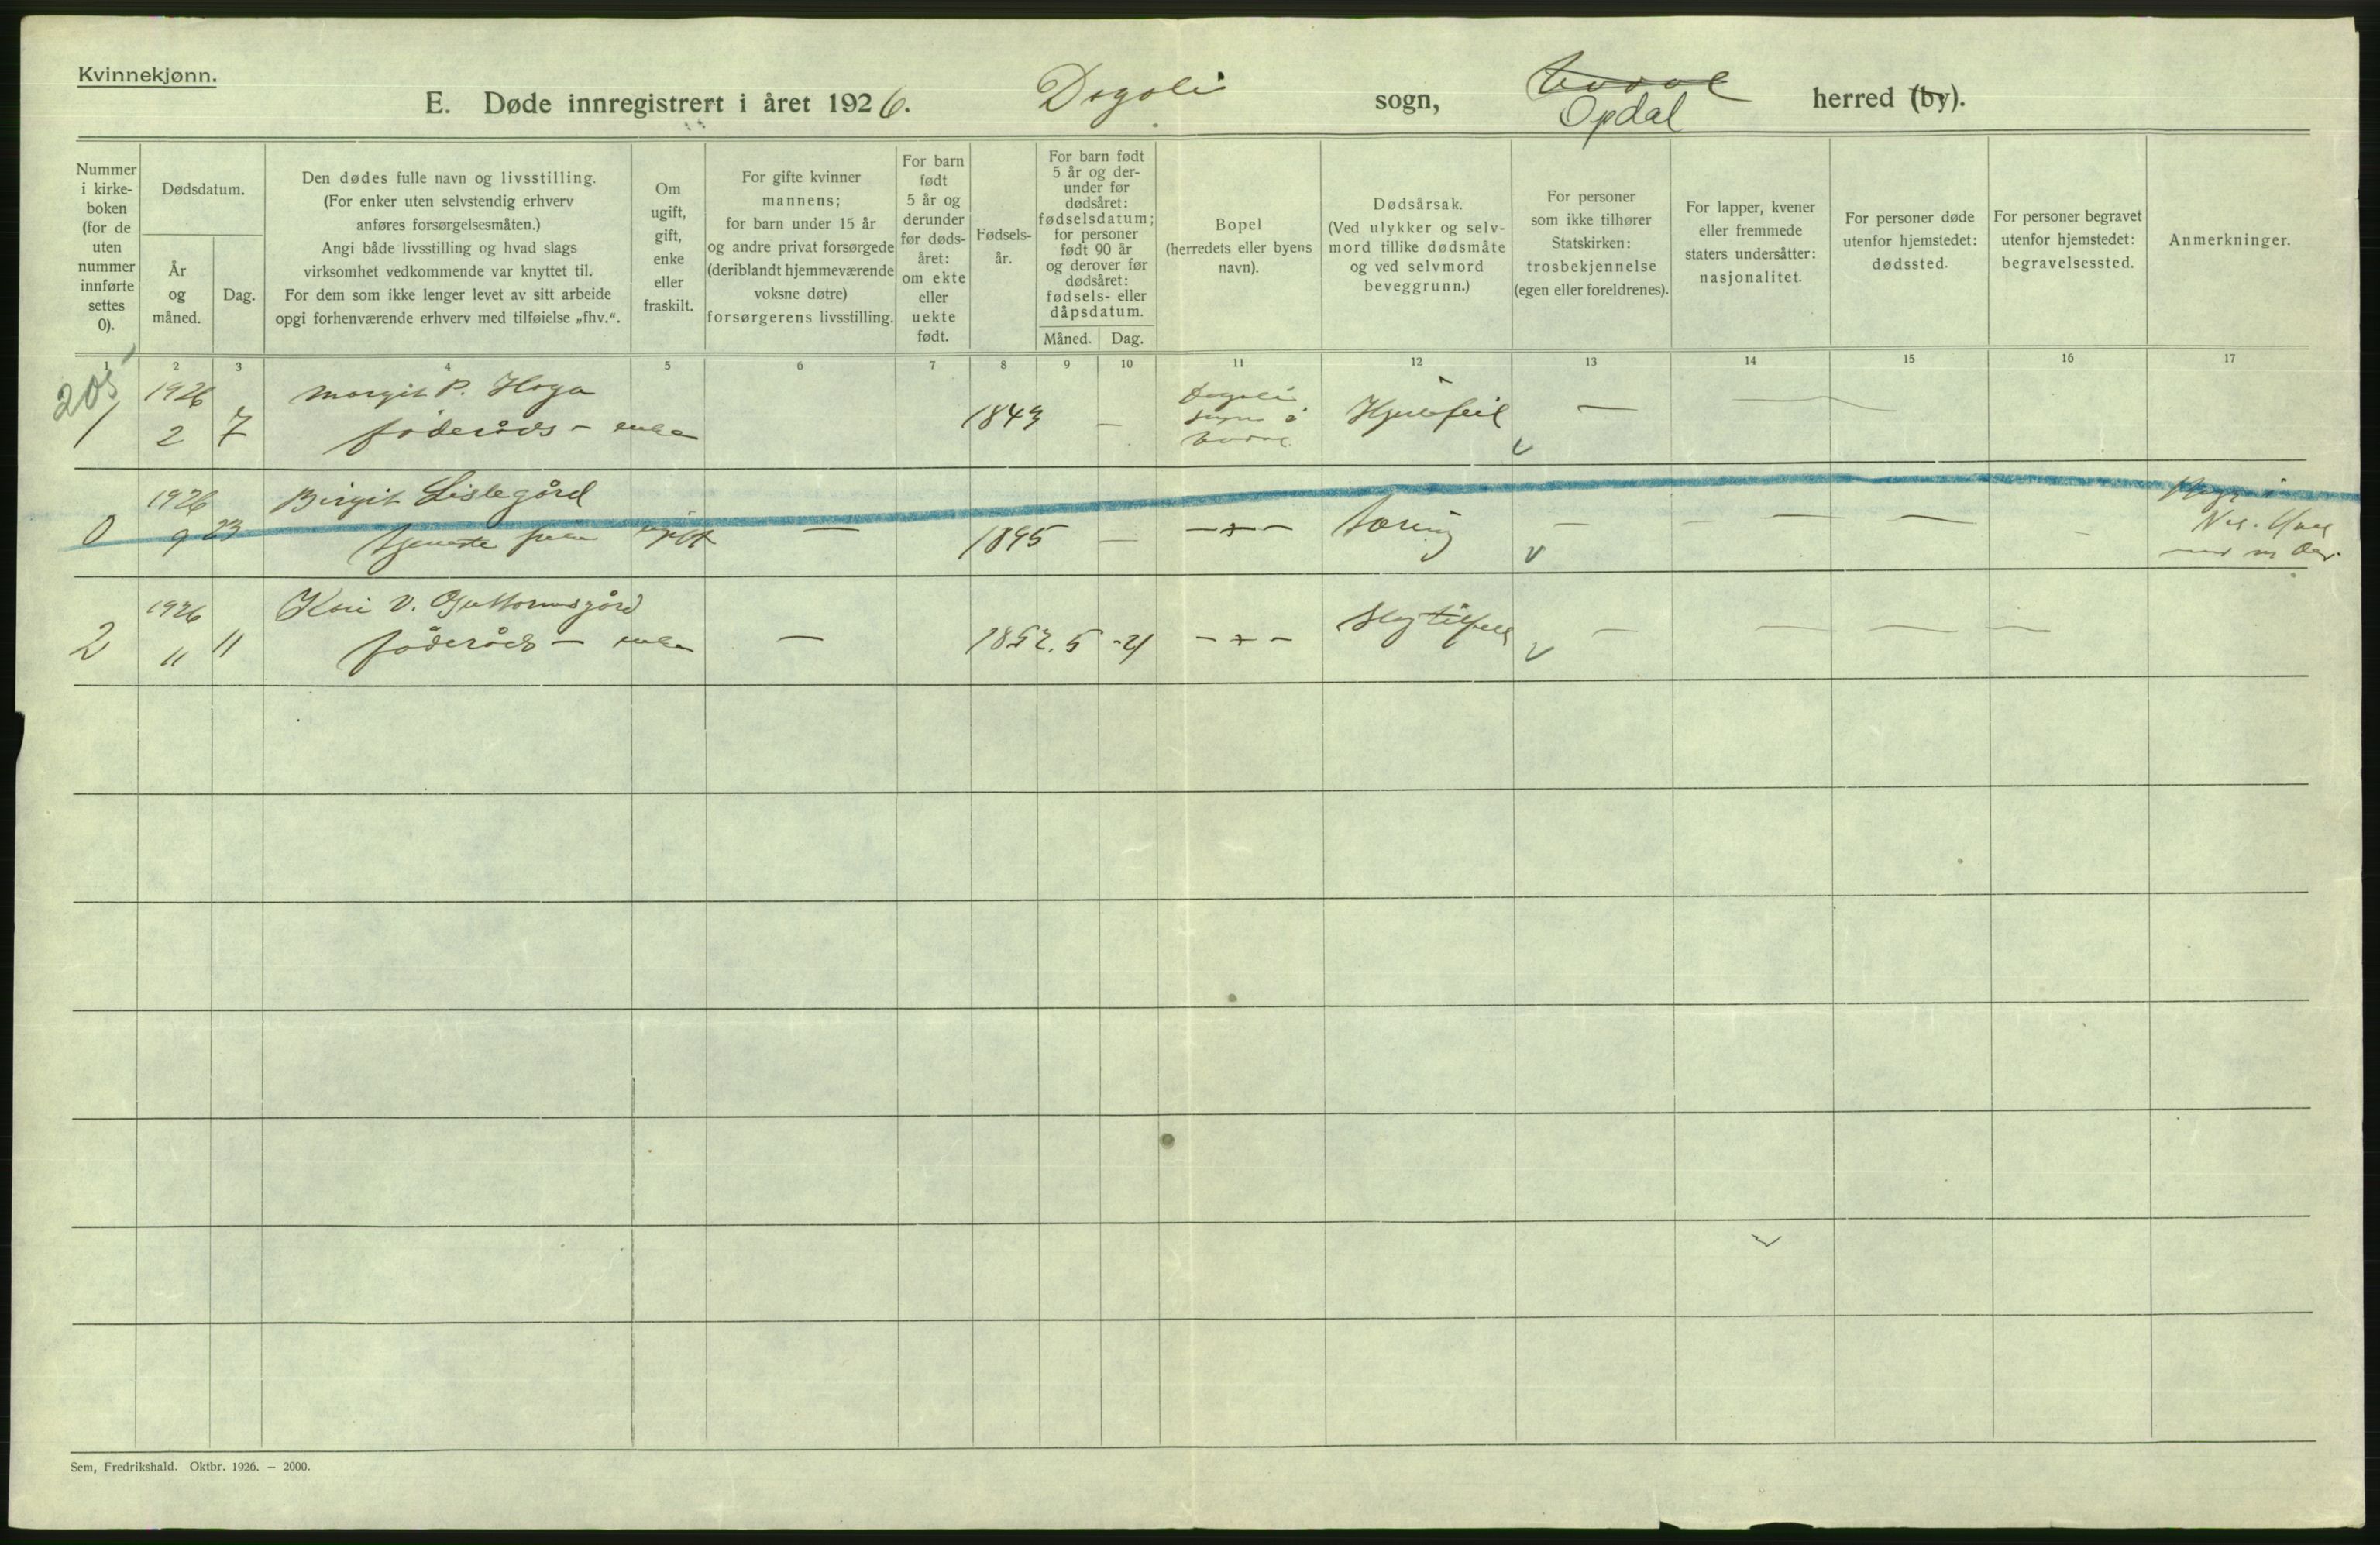 Kvinnekjønn.
E. Døde innregistrert i året 1926. Dagali sogn, Opdal herred (by).
Nummer i kirke-boken (for de uten nummer innførte settes 0).
Dødsdatum.
År og måned.
Dag.
Den dødes fulle navn og livsstilling.
(For enker uten selvstendig erhverv
anføres forsørgelsesmåten.)
Angi både livsstilling og hvad slags
virksomhet vedkommende var knyttet til.
For dem som ikke lenger levet av sitt arbeide
opgi forhenværende erhverv med tilføielse „fhv.“.
Om
ugift,
gift,
enke
eller
fraskilt.
For gifte kvinner
mannens;
for barn under 15 år
og andre privat forsørgede
(deriblandt hjemmeværende
voksne døtre)
forsørgerens livsstilling.
For barn
født
5 år og
derunder
før døds-
året:
om ekte
eller
uekte
født.
Fødsels-
år.
For barn født
5 år og der-
under før
dødsåret:
fødselsdatum;
for personer
født 90 år
og derover før
dødsåret:
fødsels- eller
dåpsdatum.
Måned. Dag.
Bopel
(herredets eller byens
navn).
Dødsårsak.
(Ved ulykker og selv-
mord tillike dødsmåte
og ved selvmord
beveggrunn.)
For personer
som ikke tilhører
Statskirken:
trosbekjennelse
(egen eller foreldrenes).
For lapper, kvener
eller fremmede
staters undersåtter:
nasjonalitet.
For personer døde
utenfor hjemstedet:
dødssted.
For personer begravet
utenfor hjemstedet:
begravelsessted.
Anmerkninger.
1 2 3 4 5 6 7 8 9 10 11 12 13 14 15 16 17
205
1926 Margit P. Haga Dagali
1 2 7 föderåds - enke 1843 — sogn i Hjertefeil —
1926 Birgit Lislegård
0 9 23 tjeneste ugift — 1895 — - " - Tæring — — —
1926 Kari V. Guttormsgård
2 11 11 föderåds - enke — 1852. 5 - 21 - " - Slagtilfelle — — — —
Sem, Fredrikshald. Oktbr. 1926. — 2000.